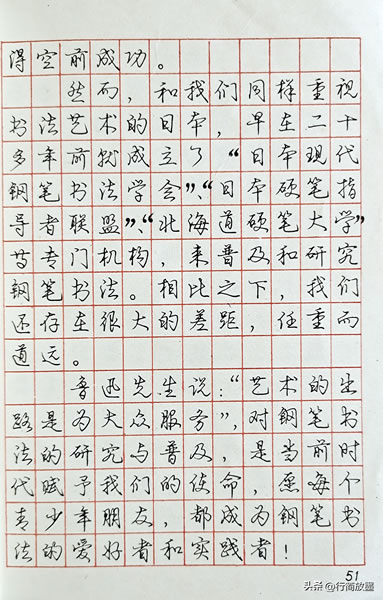 得空前成功。
然而，和我们同样重视
书法艺术的日本，早在二十
多年前就成立了“日本现代
钢笔书法学会”、“日本硬笔指
导者联盟”、“北海道硬笔大学”
等专门机构，来普及和研究
钢笔书法。相比之下，我们
还存在很大的差距，任重而
道远。
鲁迅先生说：“艺术的出
路是为大众服务”，对钢笔书
法的研究与普及，是当前时
代赋予我们的使命，愿每个
青少年朋友，都成为钢笔书
法的爱好者和实践者！
51
头条@行简放墨